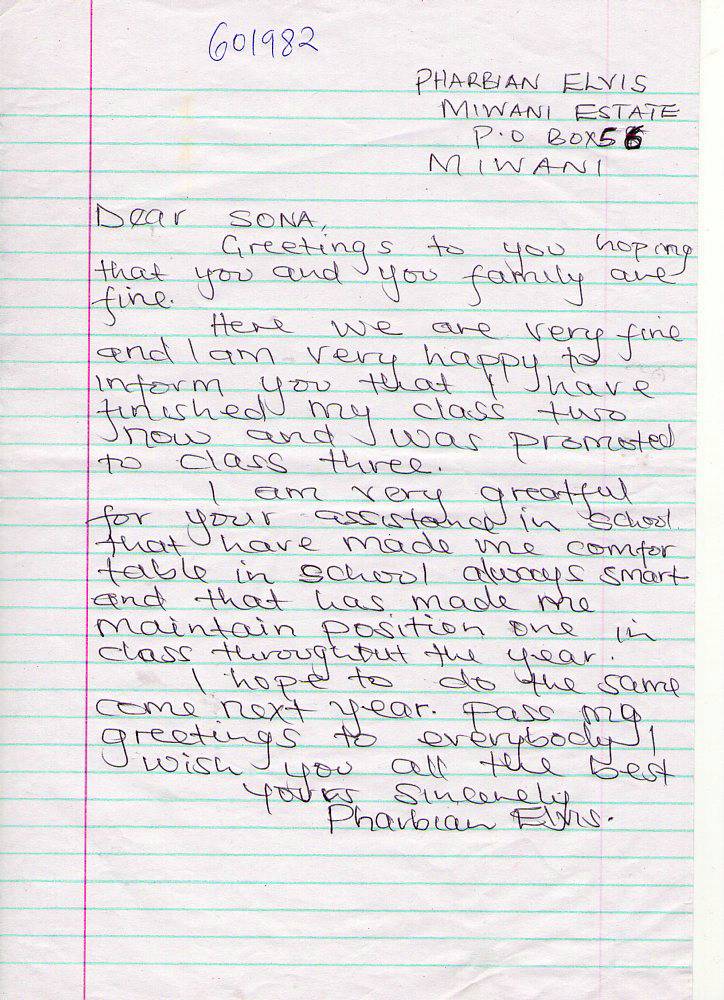 601982
PHARBIAN ELVIS
MIWANI ESTATE
P.O BOX 56
MIWANI
Dear SONA,
Greetings to you hoping
that you and you family are
fine.
Here we are very fine
and I am very happy to
inform you that I have
finished my class two
now and I was promoted
to class three.
I am very greatful
for your assistance in school
that have made me comfor
table in school always smart
and that has made me
maintain position one in
class throughout the year.
I hope to do the same
come next year. Pass my
greetings to everybody I
wish you all the best
yours Sincerely
Pharbian Elvis.